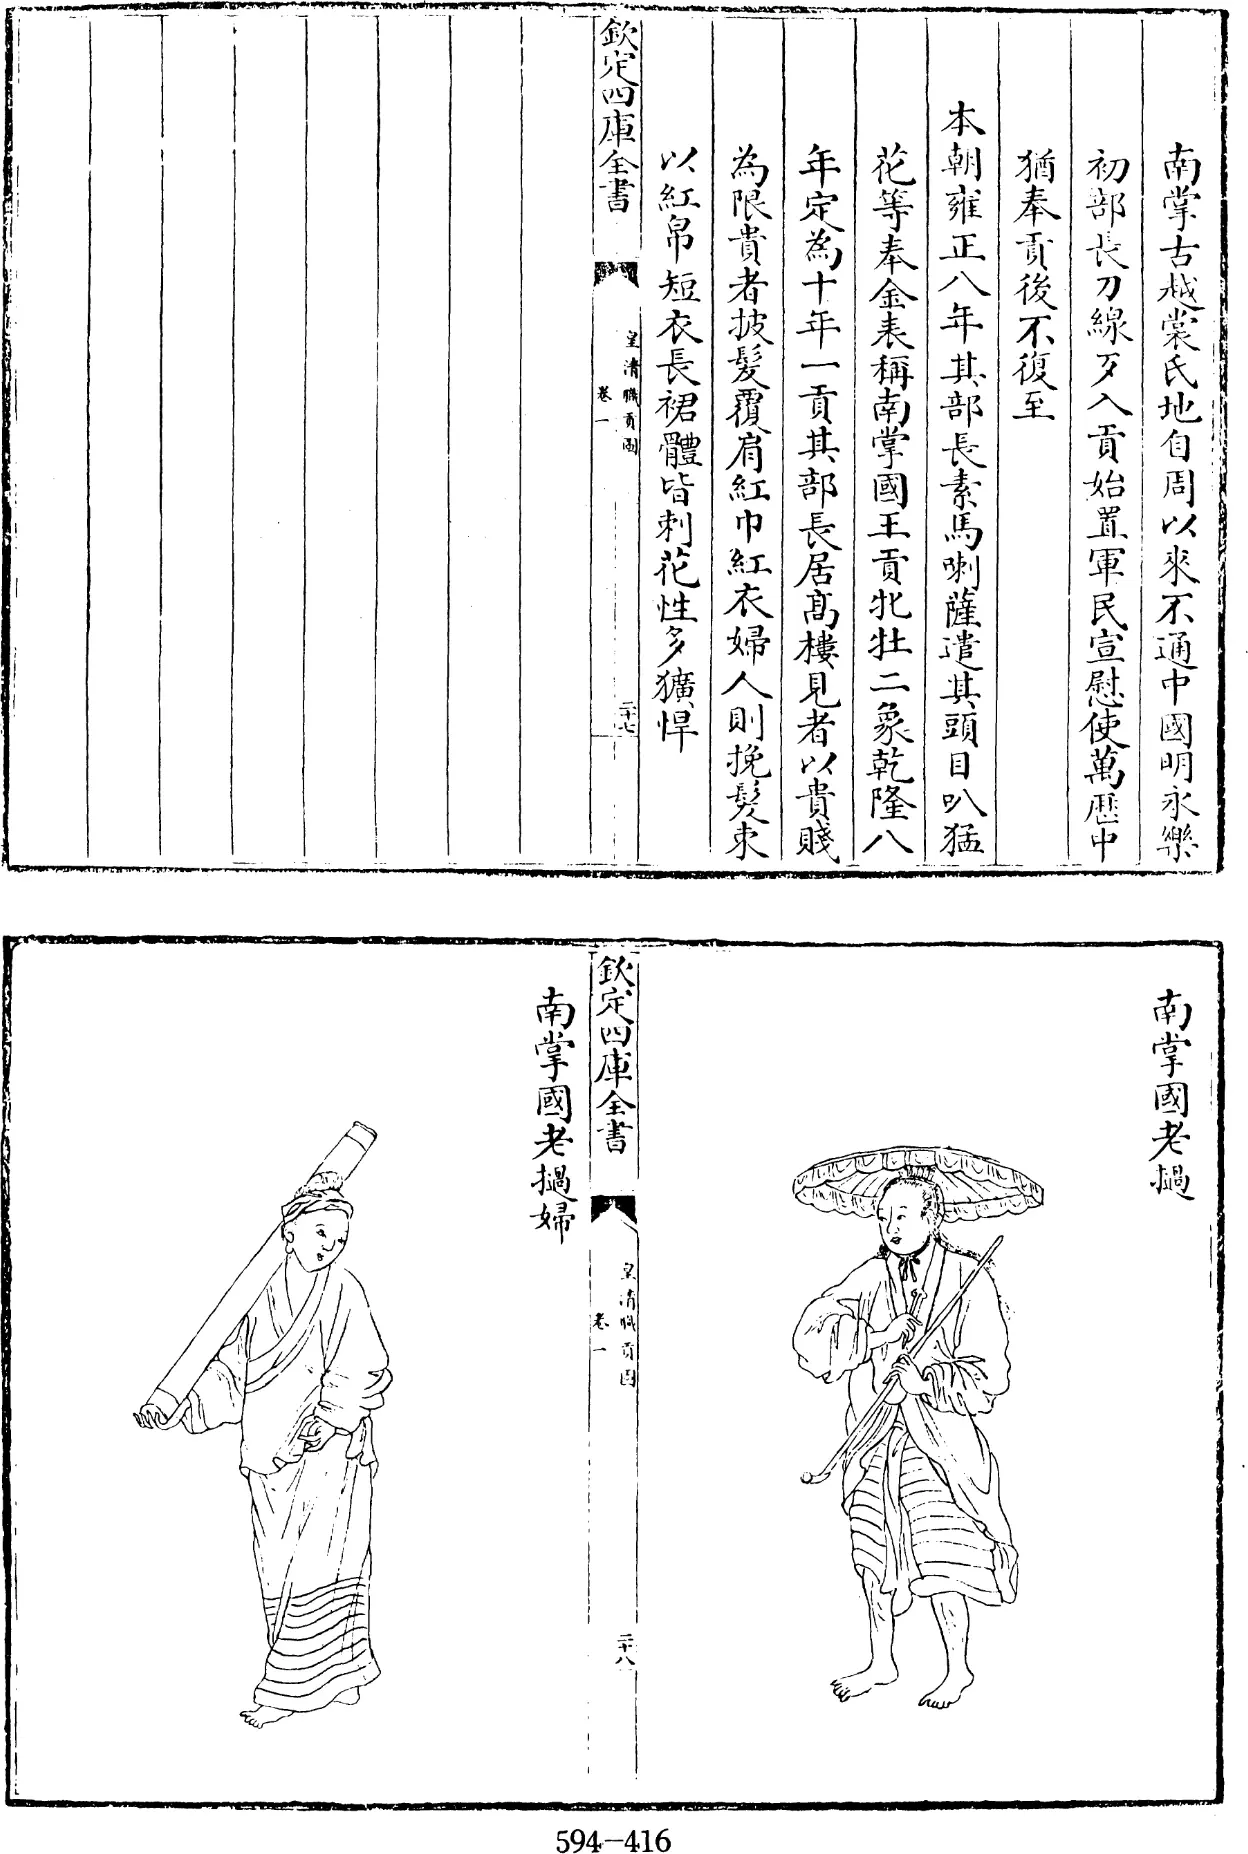 南掌古越裳氏地自周以來不通中國明永樂
初部長刀線歹入貢始置軍民宣慰使萬歷中
猶奉貢後不復至
本朝雍正八年其部長素馬喇薩遣其頭目叭猛
花等奉金表稱南掌國王貢牝牡二象乾隆八
年定為十年一貢其部長居高樓見者以貴賤
為限貴者披髮覆肩紅巾紅衣婦人則挽髮束
以紅帛短衣長裙體皆刺花性多獷悍
欽定四庫全書
皇清職貢圖
卷一
二十七
南掌國老撾
欽定四庫全書
皇清職貢圖
卷一
二十八
南掌國老撾婦
594-416